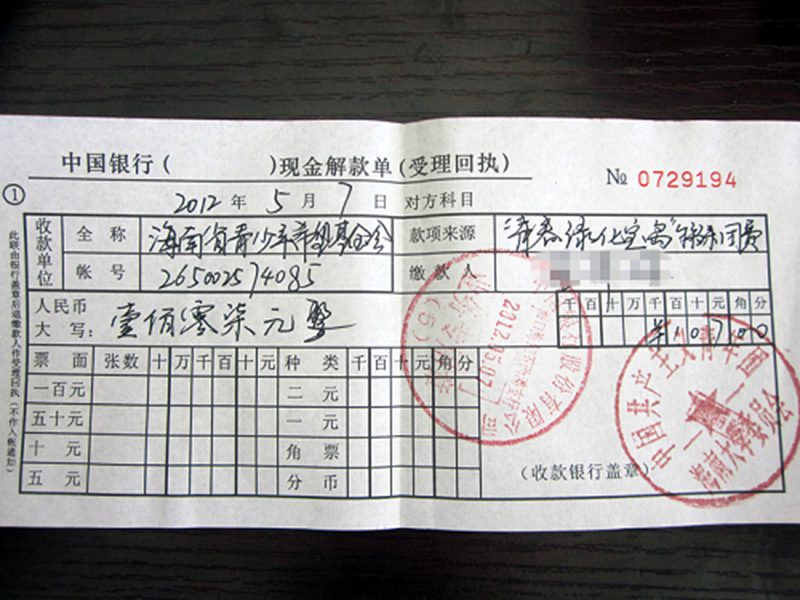 中国银行( )现金解款单(受理回执)
№ 0729194
① 2012 年 5 月 7 日 对方科目
收款单位 全称 海南省青少年希望基金会 款项来源
帐号 265002574085 缴款人
人民币大写: 壹佰零柒元整 千百十万千百十元角分
¥10700
票面 张数 十万千百十元 种类 千百十元角分
一百元 二元
五十元 一元
十元 角票
五元 分币
(收款银行盖章)
此联由银行盖章后退缴款人作受理回执(不作入帐通知)
2012.05.07
中国共产主义青年团